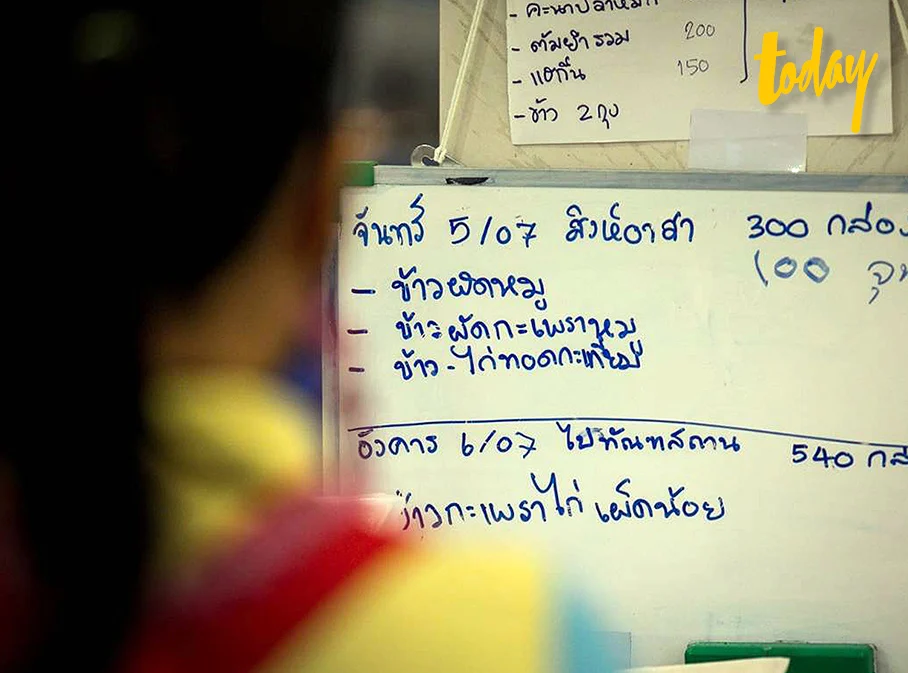 - คะน้าปลาหมึก
- ต้มยำรวม 200
- แฮกึ๊น 150
- ข้าว 2 ถุง
today
จันทร์ 5/07 สิงห์อาสา 300 กล่อง
100
- ข้าวผัดหมู
- ข้าวผัดกะเพราหมู
- ข้าว-ไก่ทอดกะเทียม
อังคาร 6/07 ไปทัณฑสถาน 540
ข้าวกะเพราไก่ เผ็ดน้อย